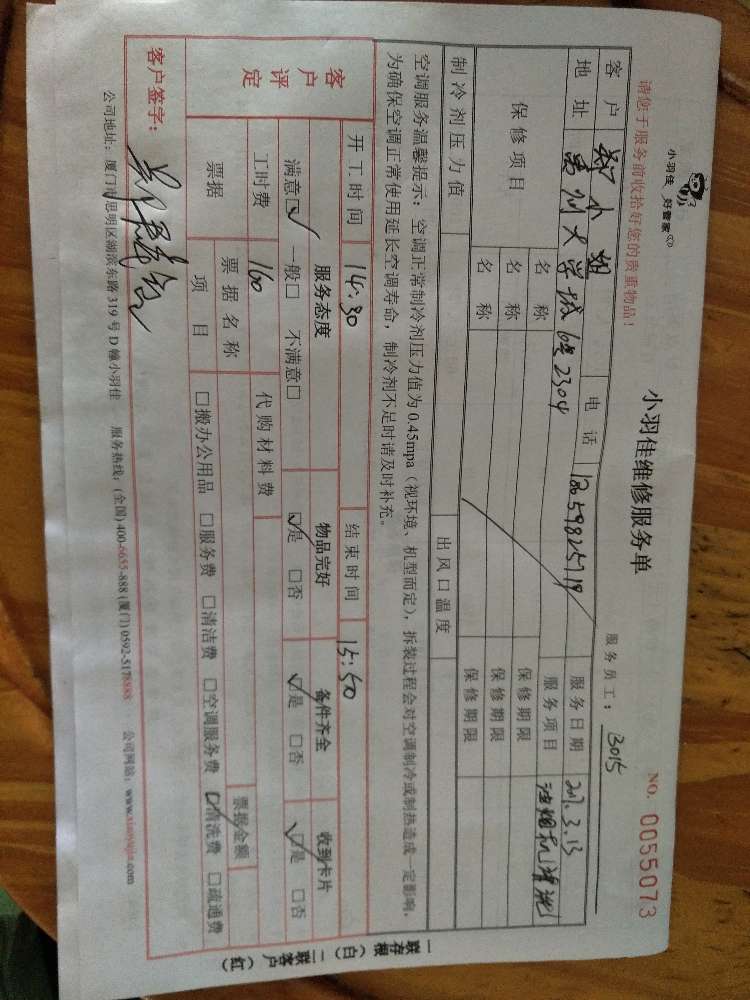 小羽佳 好管家
小羽佳维修服务单
NO. 0055073
请您于服务前收拾好您的贵重物品!
服务员工: 3015
客户 郑小姐 电话 18659825719 服务日期 2017.3.13
地址 大学城 6号2304 服务项目 油烟机清洗
保修项目 名称 保修期限
名称 保修期限
名称 保修期限
制冷剂压力值 出风口温度
空调服务温馨提示: 空调正常制冷剂压力值为0.45mpa(视环境、机型而定), 拆装过程会对空调制冷或制热造成一定影响,
为确保空调正常使用延长空调寿命, 制冷剂不足时请及时补充。
开工时间 14:30 结束时间 15:50
客户评定 服务态度 物品完好 备件齐全 收到卡片
满意☑ 一般□ 不满意□ ☑是 □否 ☑是 □否 ☑是 □否
工时费 160 代购材料费
票据 票据名称 票据金额
项目 □搬办公用品 □服务费 □清洁费 □空调服务费 ☑清洗费 □疏通费
客户签字:
公司地址: 厦门市思明区湖滨东路319号D幢小羽佳 服务热线: (全国)400-6655-888 (厦门)0592-5178888 公司网站: www.xiaoyujia.com
一联存根(白) 二联客户(红)